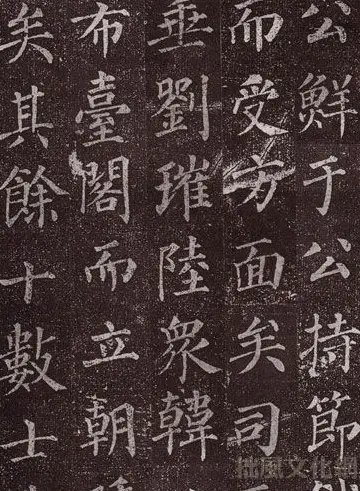 公鮮于公持節
而受方面矣司
垂劉璀陸衆韓
布臺閣而立朝
矣其餘十數士
拙風文化網